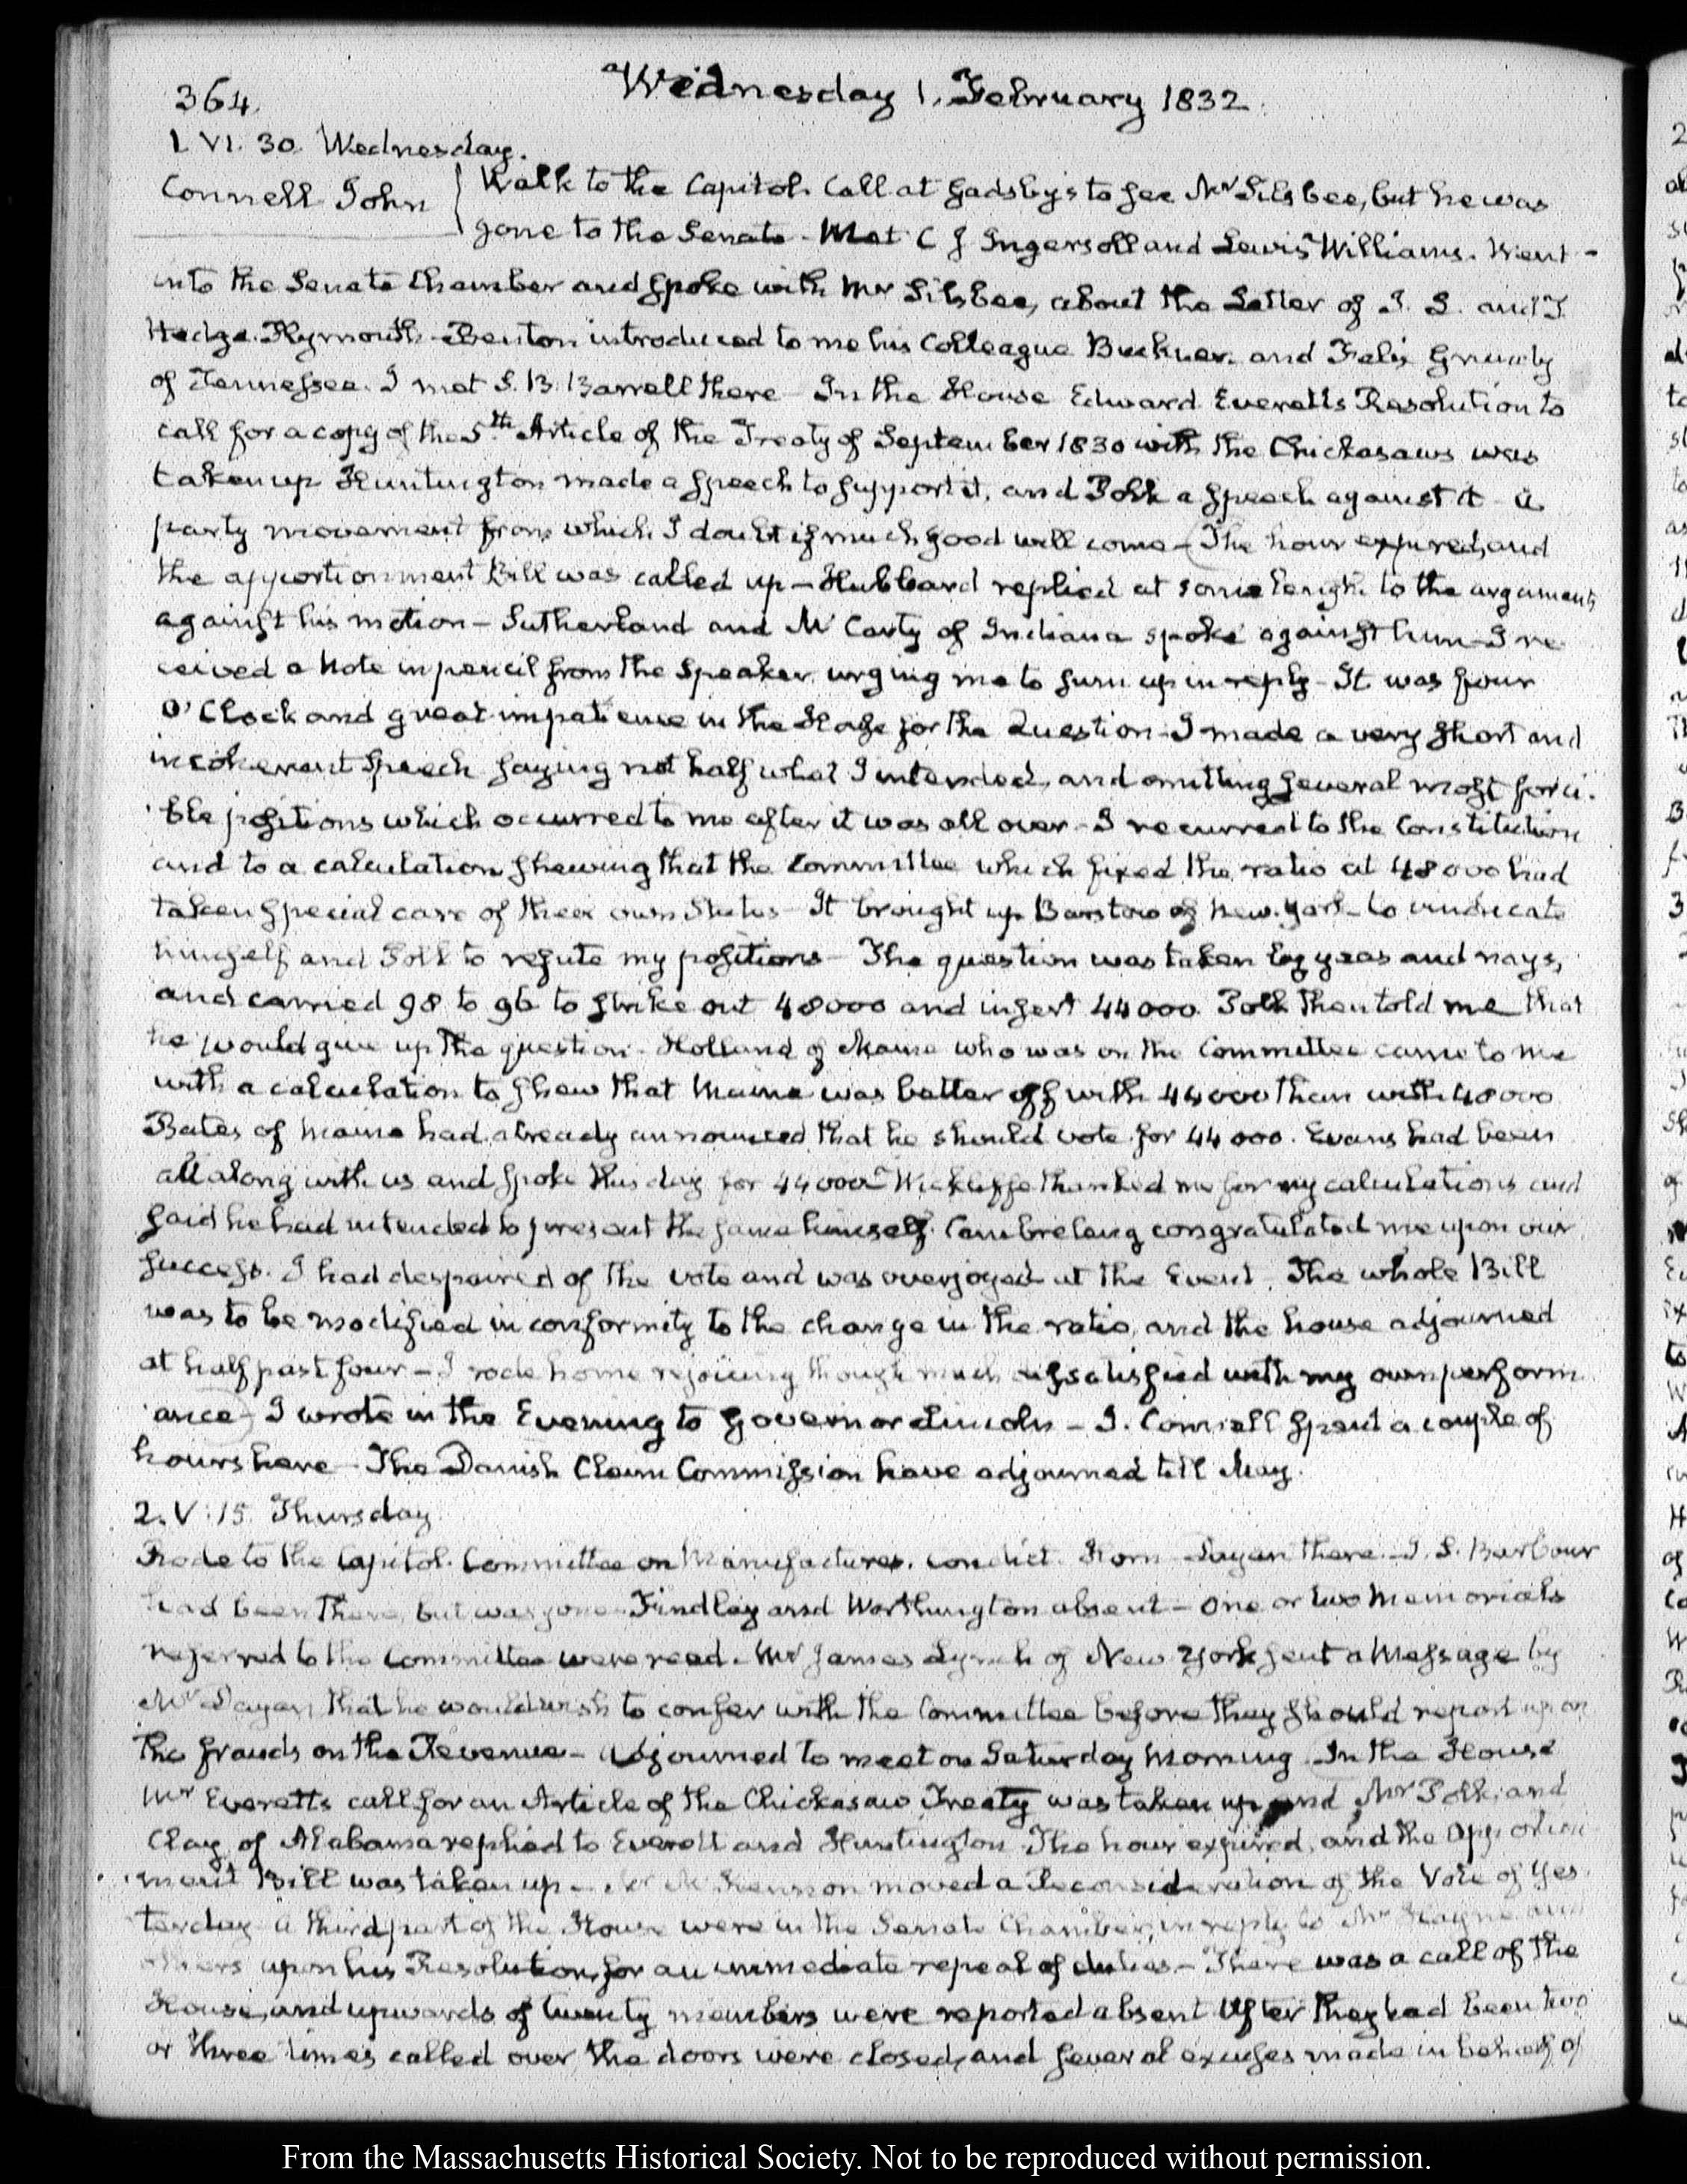 364.
Wednesday 1. February 1832.
1. VI. 30. Wednesday.
Connell John
Walk to the Capitol. Call at Gadsby's to see Mr Silsbee, but he was
gone to the Senate. Met C J Ingersoll and Lewis Williams. Went
into the Senate Chamber and spoke with Mr Silsbee, about the Letter of I. L. and T.
Hedge. Plymouth. Benton introduced to me his Colleague Buckner. and Felix Grundy
of Tennessee. I met S. B. Barrell there – In the House Edward Everett's Resolution to
call for a copy of the 5th Article of the Treaty of September 1830 with the Chickasaws was
taken up Huntington made a speech to support it, and Polk a speech against it – a
party movement from which I doubt if much good will come – The hour expired, and
the apportionment Bill was called up – Hubbard replied at some length to the arguments
against his motion – Sutherland and McCarty of Indiana spoke against him – I re
ceived a Note in pencil from the Speaker, urging me to sum up in reply – It was four
O'Clock and great impatience in the House for the Question – I made a very short and
incoherent Speech saying not half what I intended, and omitting several most forci-
ble positions which occurred to me after it was all over – I recurred to the Constitution
and to a calculation shewing that the Committee which fixed the ratio at 48000 had
taken special care of their own States – It brought up Barstow of New-York to vindicate
himself, and Polk to refute my positions – The question was taken by yeas and nays,
and carried 98 to 96 to strike out 48000 and insert 44000. Polk then told me that
he would give up the question. Holland of Maine who was on the Committee came to me
with a calculation to shew that Maine was better off with 44000 than with 48000
Bates of Maine had already announced that he should vote for 44000. Evans had been
all along with us and spoke this day for 44000 – Wickliffe thanked me for my calculations and
said he had intended to present the same himself. Cambreleng congratulated me upon our
success. I had despaired of the vote and was overjoyed at the Event. The whole Bill
was to be modified in conformity to the change in the ratio, and the house adjourned
at half past four – I rode home rejoicing though much dissatisfied with my own perform
ance – I wrote in the Evening to Governor Lincoln – J. Connell spent a couple of
hours here – The Danish Claim Commission have adjourned till May.
2. V: 15. Thursday
Rode to the Capitol. Committee on Manufactures. Condict. Horn – Dayan there. – J. S. Barbour
had been there, but was gone – Findlay and Worthington absent – One or two Memorials
referred to the Committee were read. Mr James Lynch of New York sent a Message by
Mr Dayan that he would wish to confer with the Committee before they should report upon
the frauds on the Revenue – Adjourned to meet on Saturday Morning. In the House
Mr Everett's call for an Article of the Chickasaw Treaty was taken up and Mr Polk, and
Clay of Alabama replied to Everett and Huntington. The hour expired, and the Apportion
ment Bill was taken up – Mr moved a Reconsideration of the Vote of Yes
terday – A third part of the House were in the Senate Chamber, in reply to Mr Hayne and
others upon his Resolution for an immediate repeal of duties – There was a call of the
House, and upwards of twenty members were reported absent After they had been two
or three times called over, the doors were closed, and several excuses made in behalf of
From the Massachusetts Historical Society. Not to be reproduced without permission.